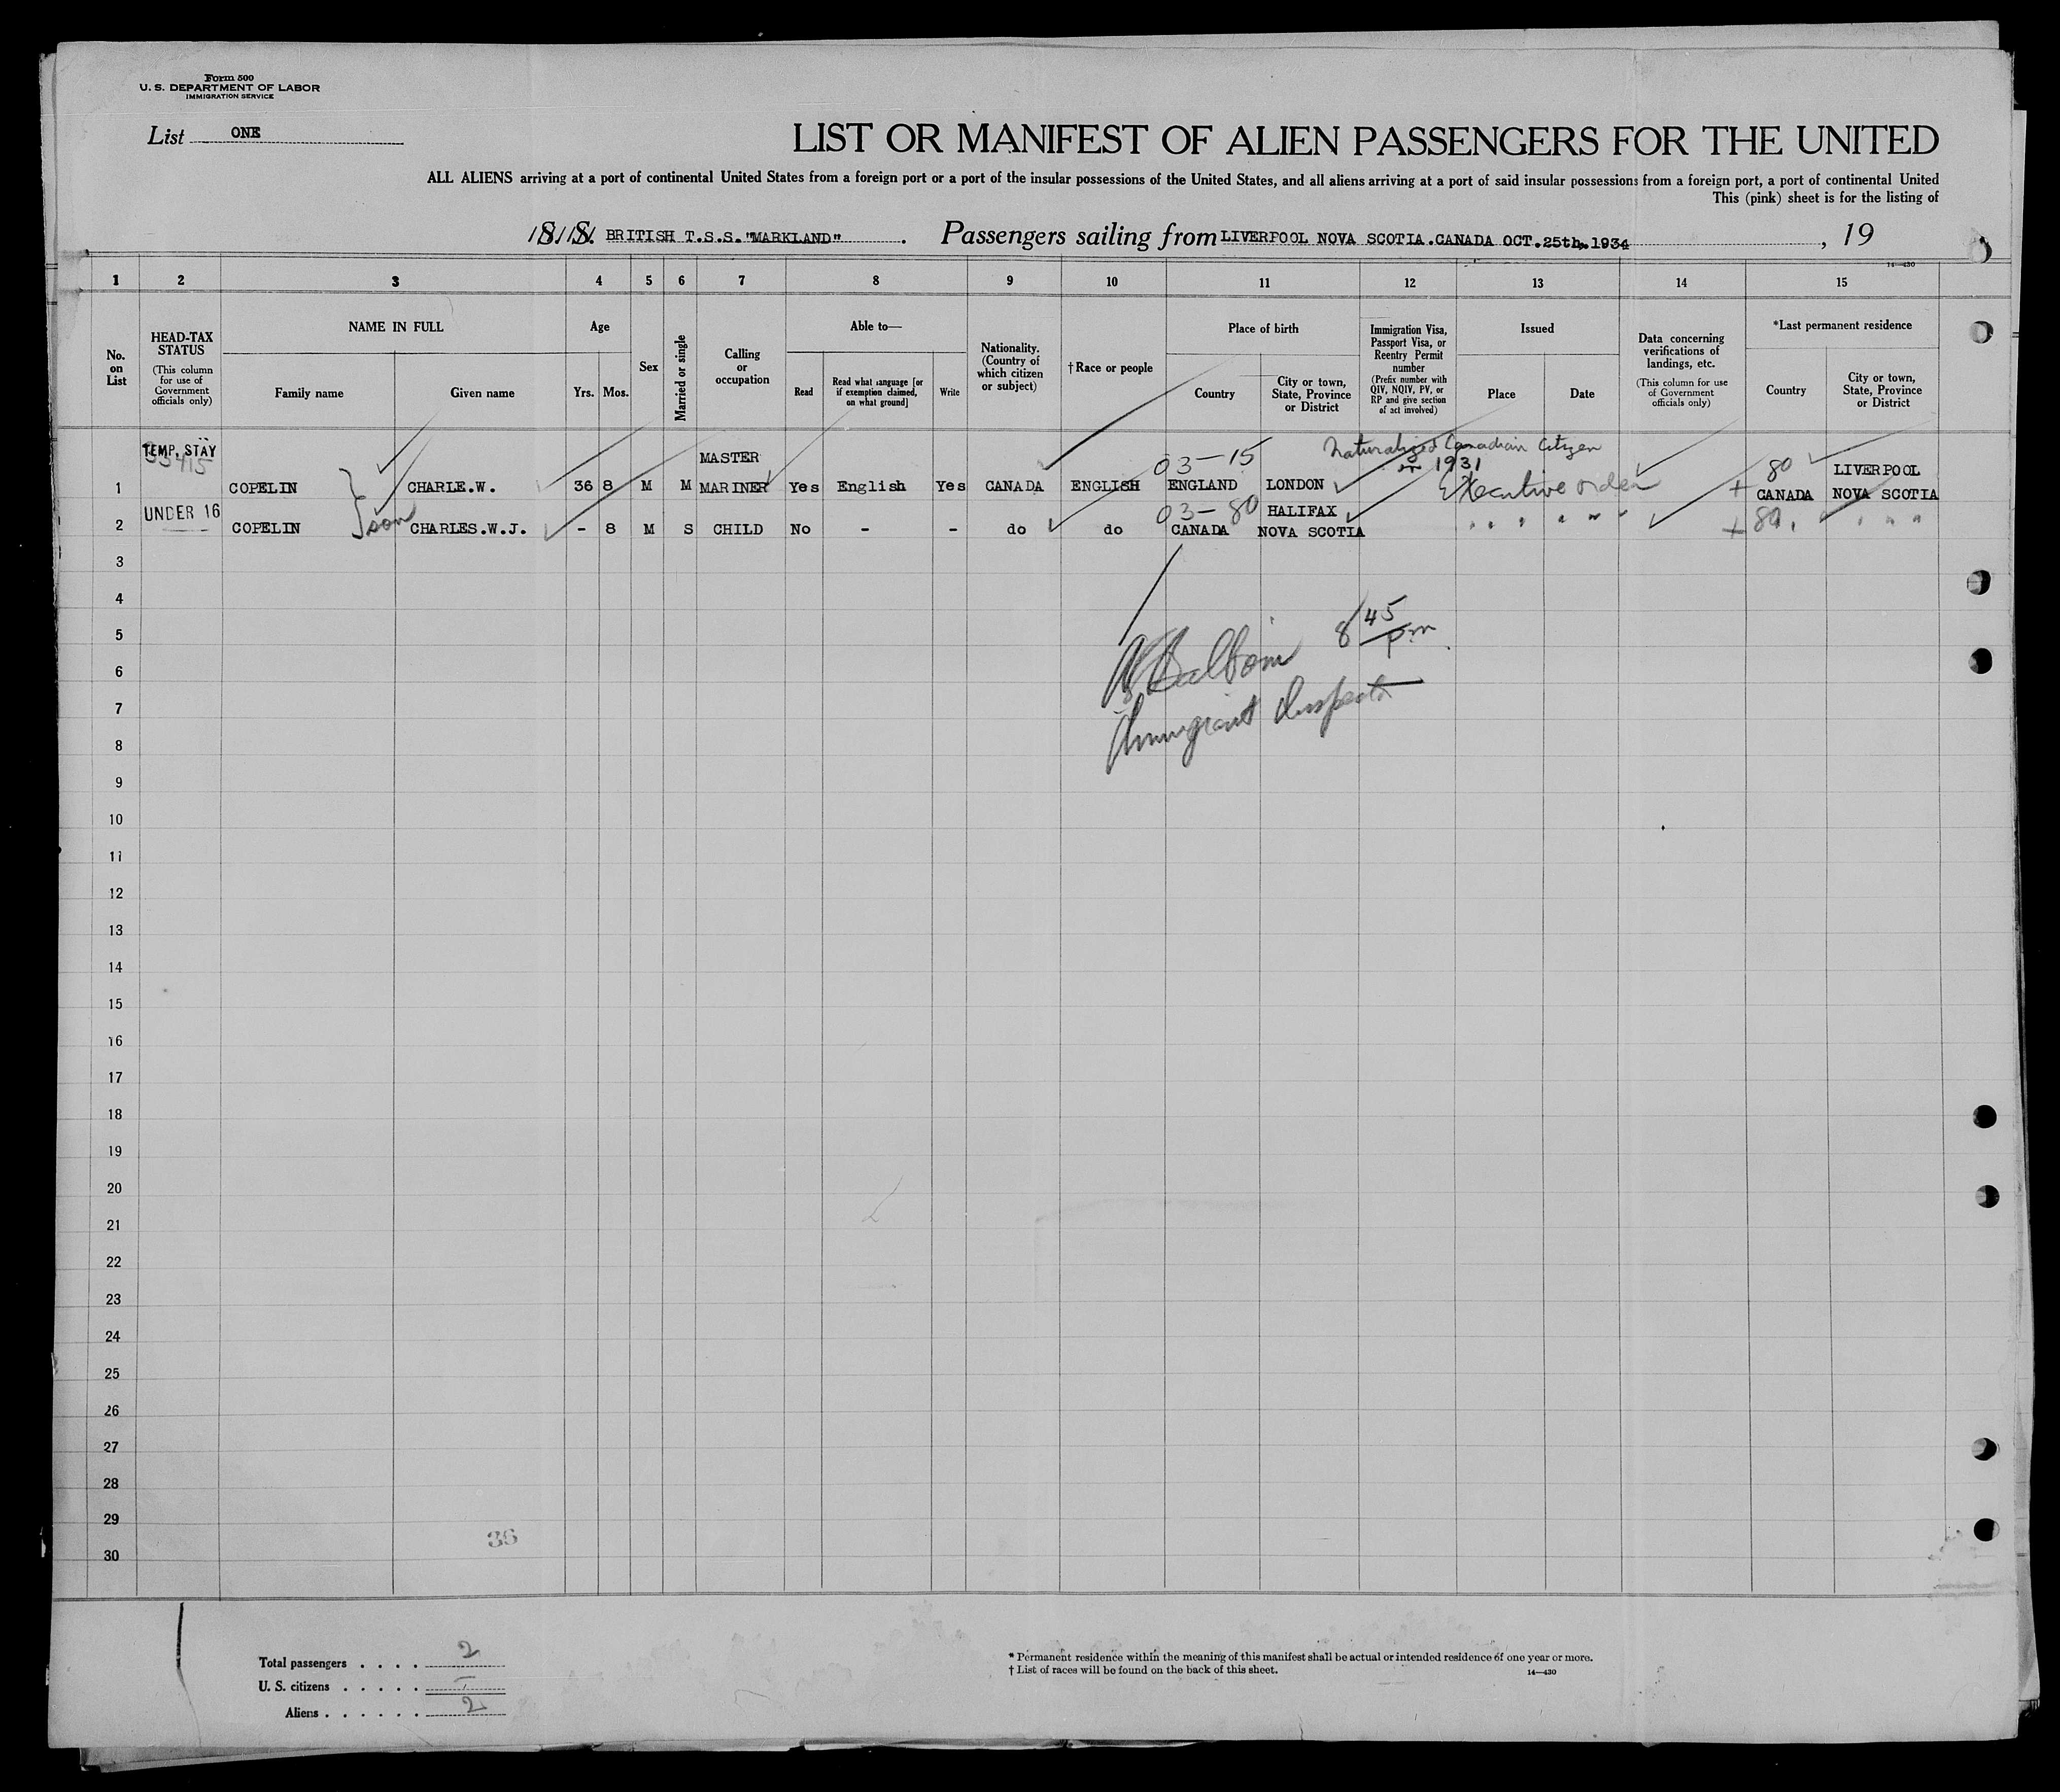 Form 500
U. S. DEPARTMENT OF LABOR
IMMIGRATION SERVICE
List ONE
LIST OR MANIFEST OF ALIEN PASSENGERS FOR THE UNITED
ALL ALIENS arriving at a port of continental United States from a foreign port or a port of the insular possessions of the United States, and all aliens arriving at a port of said insular possessions from a foreign port, a port of continental United
This (pink) sheet is for the listing of
S. S. BRITISH T.S.S."MARKLAND" . Passengers sailing from LIVERPOOL NOVA SCOTIA.CANADA OCT.25th.1934 , 19
14—430
1 2 3 4 5 6 7 8 9 10 11 12 13 14 15
No. on List
HEAD-TAX STATUS
(This column for use of Government officials only)
NAME IN FULL
Family name Given name
Age
Yrs. Mos.
Sex
Married or single
Calling or occupation
Able to—
Read
Read what language [or if exemption claimed, on what ground]
Write
Nationality. (Country of which citizen or subject)
†Race or people
Place of birth
Country
City or town, State, Province or District
Immigration Visa, Passport Visa, or Reentry Permit number
(Prefix number with QIV, NQIV, PV, or RP and give section of act involved)
Issued
Place Date
Data concerning verifications of landings, etc.
(This column for use of Government officials only)
*Last permanent residence
Country
City or town, State, Province or District
TEMP. STAY
MASTER 03-15 Naturalized Canadian Citizen
in 1931 80 LIVERPOOL
1 COPELIN CHARLE.W. 36 8 M M MARINER Yes English Yes CANADA ENGLISH ENGLAND LONDON Executive order CANADA NOVA SCOTIA
UNDER 16 son 03-80 HALIFAX
2 COPELIN CHARLES.W.J. - 8 M S CHILD No - - do do CANADA NOVA SCOTIA " " " " " " 80 " " "
3
4
5 8 45 pm
6
7 Immigrant Inspector
8
9
10
11
12
13
14
15
16
17
18
19
20
21
22
23
24
25
26
27
28
29
36
30
Total passengers . . . . 2
U. S. citizens . . . . . -
Aliens . . . . . . 2
* Permanent residence within the meaning of this manifest shall be actual or intended residence of one year or more.
† List of races will be found on the back of this sheet.
14—430